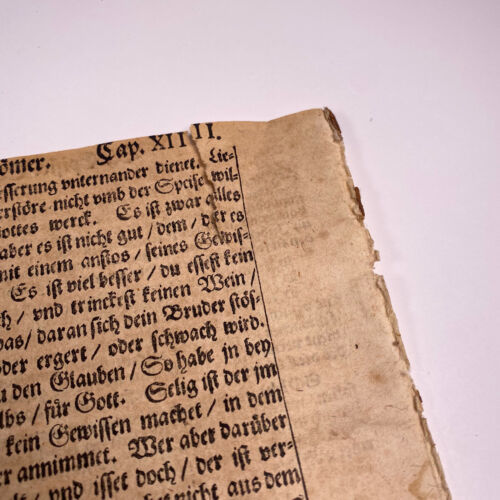 ömer. Cap. XIIII.
esserung vnternander dienet. Lie⸗
erstöre nicht vmb der Speise wil⸗
ottes werck. Es ist zwar alles
aber es ist nicht gut / dem / der es
mit einem anstos / seines Gewis⸗
Es ist viel besser / du essest kein
ch / vnd trinckest keinen Wein /
was / daran sich dein Bruder stös⸗
oder ergert / oder schwach wird.
u den Glauben / So habe jn bey
lbs / für Gott. Selig ist der jm
kein Gewissen machet / in dem
r annimmet. Wer aber darüber
lt / vnd isset doch / der ist ver⸗
nicht aus dem